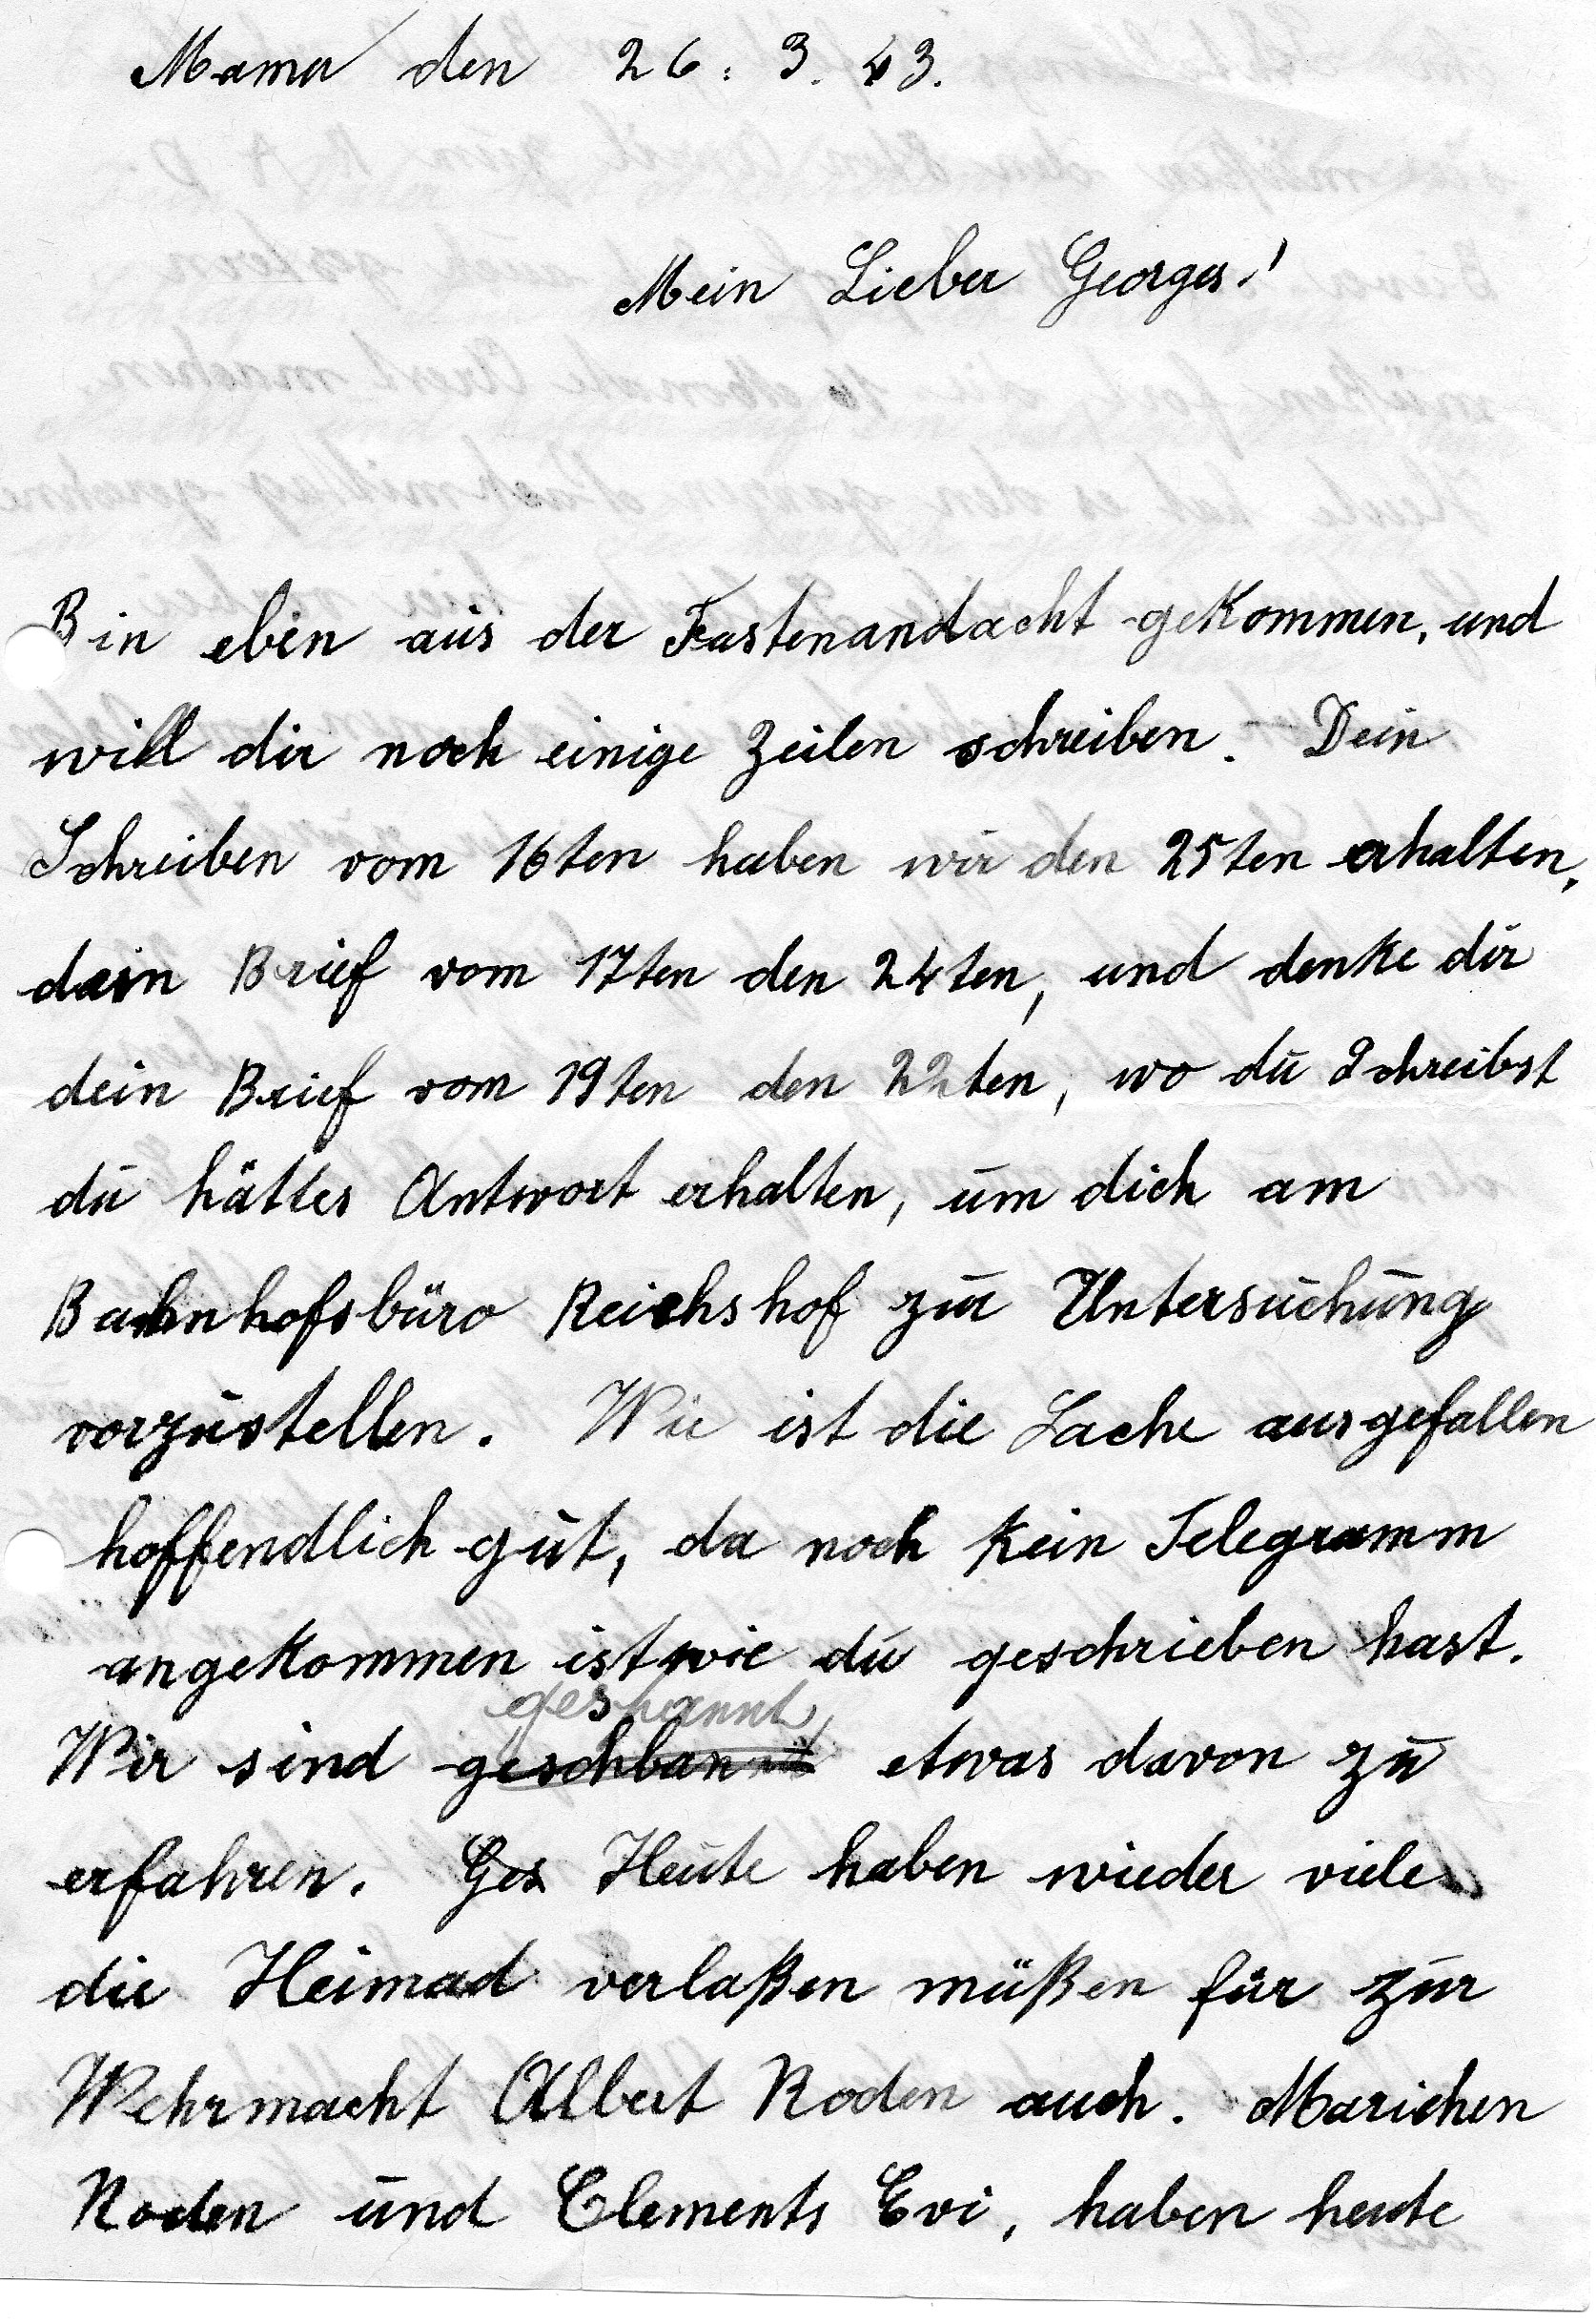 Mamer den 26. 3. 43.
Mein Lieber Georges!
Bin eben aus der Fastenandacht gekommen, und
will dir noch einige Zeilen schreiben. Dein
Schreiben vom 16ten haben wir den 25ten erhalten,
dein Brief vom 17ten den 24ten, und denke dir
dein Brief vom 19ten den 22ten, wo du Schreibst
du hättes Antwort erhalten, um dich am
Bahnhofsbüro Reichshof zur Untersuchung
vorzustellen. Wie ist die Sache ausgefallen
hoffendlich gut, da noch kein Telegramm
angekommen ist wie du geschrieben hast.
gespannt
Wir sind geschbannt etwas davon zu
erfahren. Ges Heute haben wieder viele
die Heimad verlaßen müßen für zur
Wehrmacht Albert Roden auch. Marichen
Roden und Clements Evi, haben heute